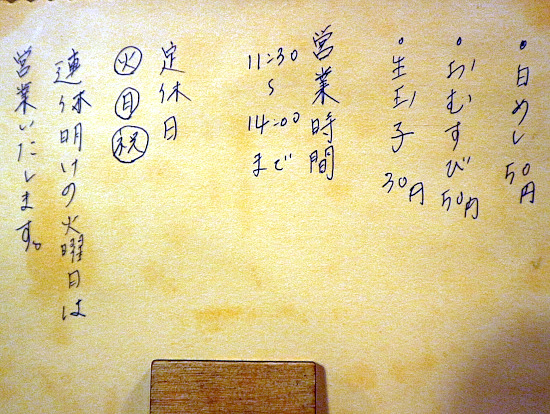 ・白めし 50円
・おむすび 50円
・生玉子 30円
営業時間
11:30
〜
14:00
まで
定休日
火日祝
連休明けの火曜日は
営業いたします。